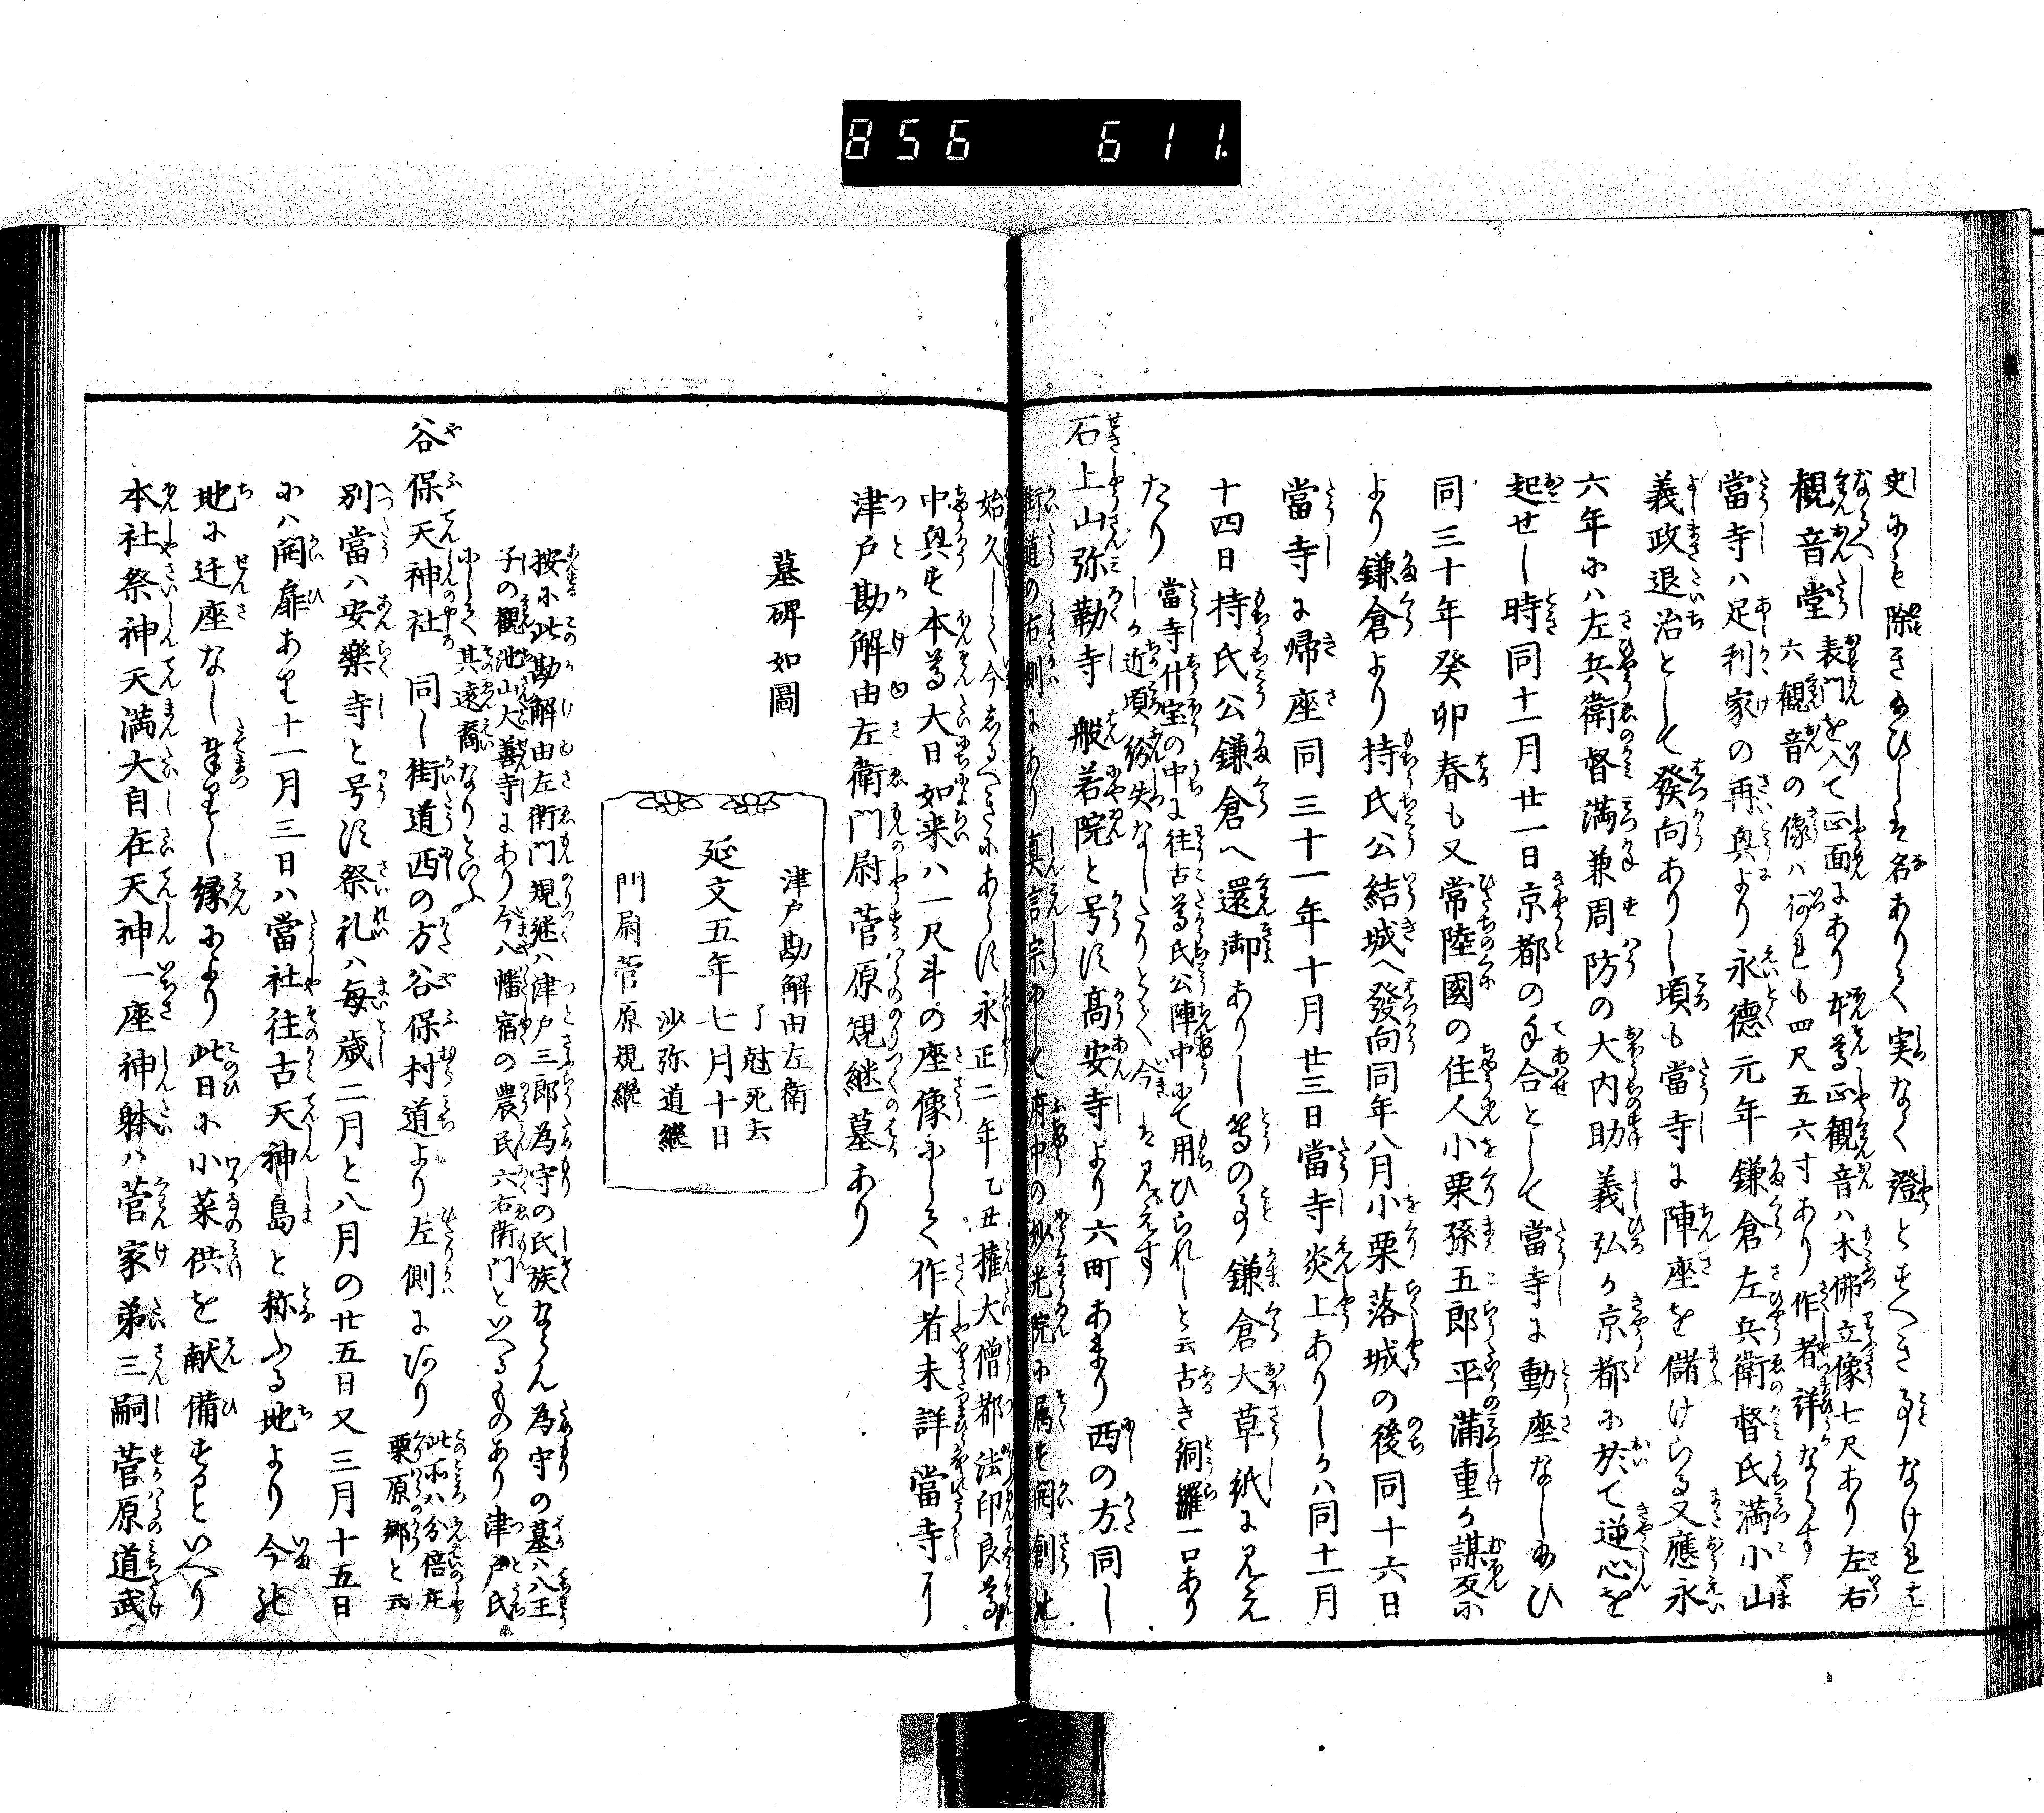 856 611.
史にも除き給ひしは名ありて実なく證とすへき事なけれは
なるへし
観音堂 表門を入て正面にあり本尊正観音ハ木佛立像七尺あり左右
六観音の像ハ何れも四尺五六寸あり作者詳ならす
當寺ハ足利家の再興より永徳元年鎌倉左兵衛督氏満小山
義政退治として發向ありし頃も當寺に陣座を儲けらる又應永
六年にハ左兵衛督満兼周防の大内助義弘か京都に於て逆心を
起せし時同十一月廿一日京都の手合として當寺に動座なし給ひ
同三十年癸卯春も又常陸國の住人小栗孫五郎平満重か謀叛に
より鎌倉より持氏公結城へ發向同年八月小栗落城の後同十六日
當寺に帰座同三十一年十月廿三日當寺炎上ありしか八同十一月
十四日持氏公鎌倉へ還御ありし等の事鎌倉大草紙に見え
たり 當寺什宝の中に往古尊氏公陣中にて用ひられしと云古き銅鑼一口あり
しか近頃紛失なしたりとて今は見えす
石上山弥勒寺 般若院と号す高安寺より六町あまり西の方同し
街道の右側にあり真言宗にして府中の妙光院に属す開創此
始久しくて今しるへきにあらす永正二年乙丑権大僧都法印良尊
中興す本尊大日如来ハ一尺斗の座像にして作者未詳當寺に
津戸勘解由左衛門尉菅原規継墓あり
墓碑如圖
津戸勘解由左衛
了愆死去
延文五年七月十日
沙弥道継
門尉菅原規継
按に此勘解由左衛門規継ハ津戸三郎為守の氏族ならん為守の墓ハ八王
子の観池山大善寺にあり今八幡宿の農民六右衛門といへるものあり津戸氏
にして其遠裔なりといふ
谷保天神社 同し街道西の方谷保村道より左側にあり 此所ハ分倍庄
栗原郷と云
別當ハ安樂寺と号す祭礼ハ毎歳二月と八月の廿五日又三月十五日
にハ開扉あり十一月三日ハ當社往古天神島と称ふる地より今の
地に迁座なし奉りし縁により此日に小菜供を献備するといへり
本社祭神天満大自在天神一座神躰ハ菅家弟三嗣菅原道武